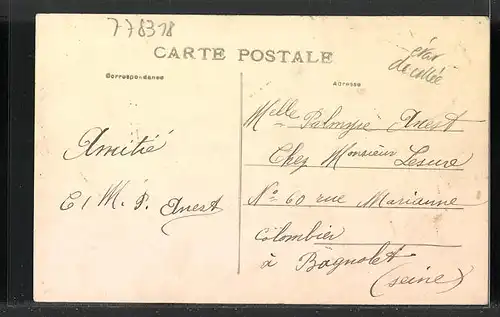 778318
CARTE POSTALE
Correspondance
Adresse
décollée
Amitié
M. P. Anest
Melle Palmyre Anest
Chez Monsieur Lesure
No 60 rue Marianne
Colombier
à Bagnolet
(Seine)